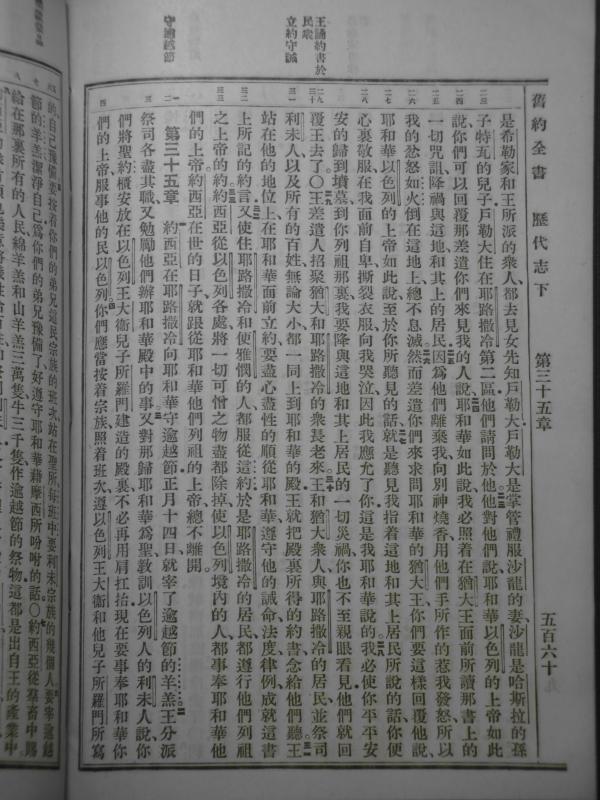 舊約全書 歷代志下 第三十五章 五百六十
王誦約書於
民衆
立約守誡
守逾越節
是希勒家和王所派的衆人都去見女先知戶勒大戶勒大是掌管禮服沙龍的妻沙龍是哈斯拉的孫
子特瓦的兒子戶勒大住在耶路撒冷第二區他們請問於他他對他們說耶和華以色列的上帝如此
說你們可以回覆那差遣你們來見我的人說耶和華如此說我必照着在猶大王面前所讀那書上的
一切咒詛降禍與這地和其上的居民因爲他們離棄我向別神燒香用他們手所作的惹我發怒所以
我的忿怒如火倒在這地上總不息滅然而差遣你們來求問耶和華的猶大王你們要這樣回覆他說
耶和華以色列的上帝如此說至於你所聽見的話就是聽見我指着這地和其上居民所說的話你便
心裏敬服在我面前自卑撕裂衣服向我哭泣因此我應允了你這是我耶和華說的我必使你平平安
安的歸到墳墓到你列祖那裏我要降與這地和其上居民的一切災禍你也不至親眼看見他們就回
覆王去了〇王差遣人招聚猶大和耶路撒冷的衆長老來王和猶大衆人與耶路撒冷的居民並祭司
利未人以及所有的百姓無論大小都一同上到耶和華的殿王就把殿裏所得的約書念給他們聽王
站在他的地位上在耶和華面前立約要盡心盡性的順從耶和華遵守他的誡命法度律例成就這書
上所記的約言又使住耶路撒冷和便雅憫的人都服從這約於是耶路撒冷的居民都遵行他們列祖
之上帝的約約西亞從以色列各處將一切可憎之物盡都除掉使以色列境內的人都事奉耶和華他
們的上帝約西亞在世的日子就跟從耶和華他們列祖的上帝總不離開
第三十五章 約西亞在耶路撒冷向耶和華守逾越節正月十四日就宰了逾越節的羊羔王分派
祭司各盡其職又勉勵他們辦耶和華殿中的事又對那歸耶和華爲聖敎訓以色列人的利未人說你
們將聖約櫃安放在以色列王大衞兒子所羅門建造的殿裏不必再用肩扛抬現在要事奉耶和華你
們的上帝服事他的民以色列你們應當按着宗族照着班次遵以色列王大衞和他兒子所羅門所寫
的自己豫備要按着你們的弟兄這民宗族的班次站在聖所每班中要利未宗族的幾個人要宰逾越
節的羊羔潔淨自己爲你們的弟兄豫備了好遵守耶和華藉摩西所吩咐的話〇約西亞從羣畜中賜
給在那裏所有的人民綿羊羔和山羊羔三萬隻牛三千隻作逾越節的祭物這都是出自王的產業中